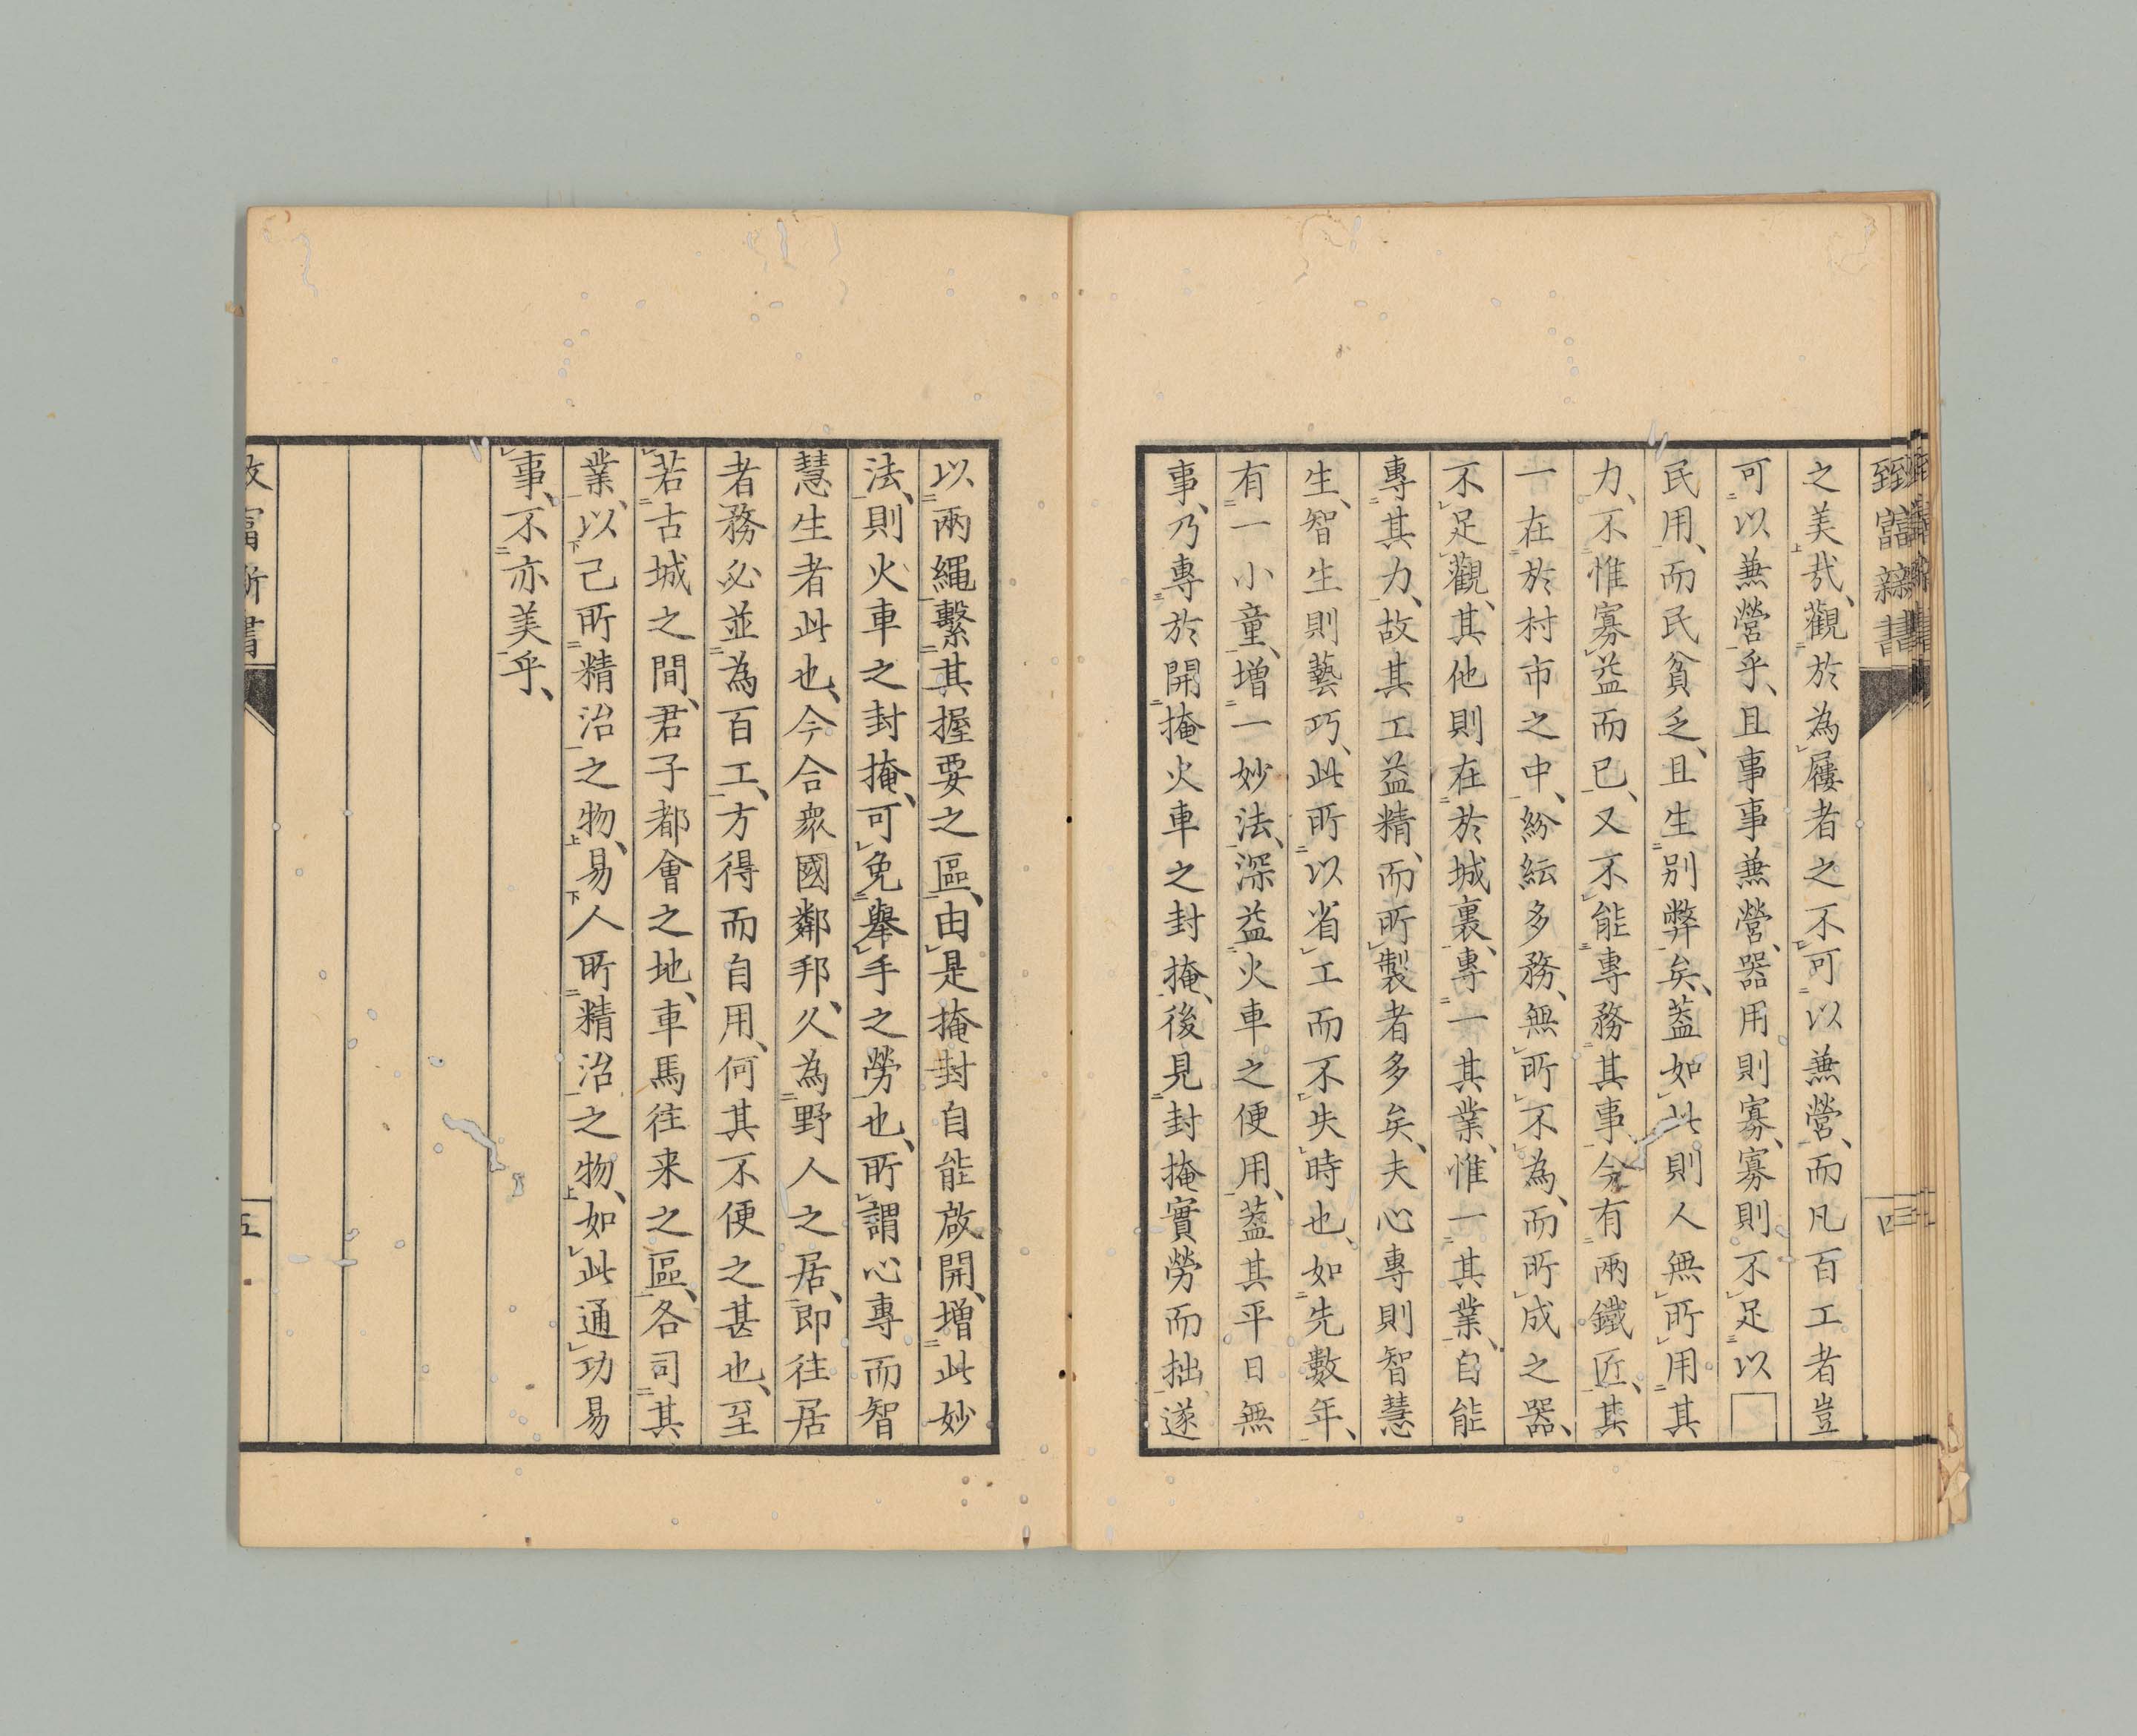 之美哉、觀於為屨者之不可以兼營、而凡百工者豈
可以兼營乎、且事事兼營、器用則寡、寡則不足以
民用、而民貧乏、且生別弊矣、蓋如此則人無所用其
力、不惟寡益而已、又不能專務其事、今有兩鐵匠、其
一在於村市之中、紛紜多務、無所不為、而所成之器、
不足觀、其他則在於城裏、專一其業、惟一其業、自能
專其力、故其工益精、而所製者多矣、夫心專則智慧
生、智生則藝巧、此所以省工而不失時也、如先數年、
有一小童、增一妙法、深益火車之便用、蓋其平日無
事、乃專於開掩火車之封掩、後見封掩實勞而拙遂
以兩繩繫其握要之區、由是掩封自能啟開、增此妙
法、則火車之封掩、可免舉手之勞也、所謂心專而智
慧生者此也、今合眾國鄰邦、久為野人之居、即往居
者務必並為百工、方得而自用、何其不便之甚也、至
若古城之間、君子都會之地、車馬往来之區、各司其
業、以己所精治之物、易人所精治之物、如此通功易
事、不亦美乎、
致富新書
五